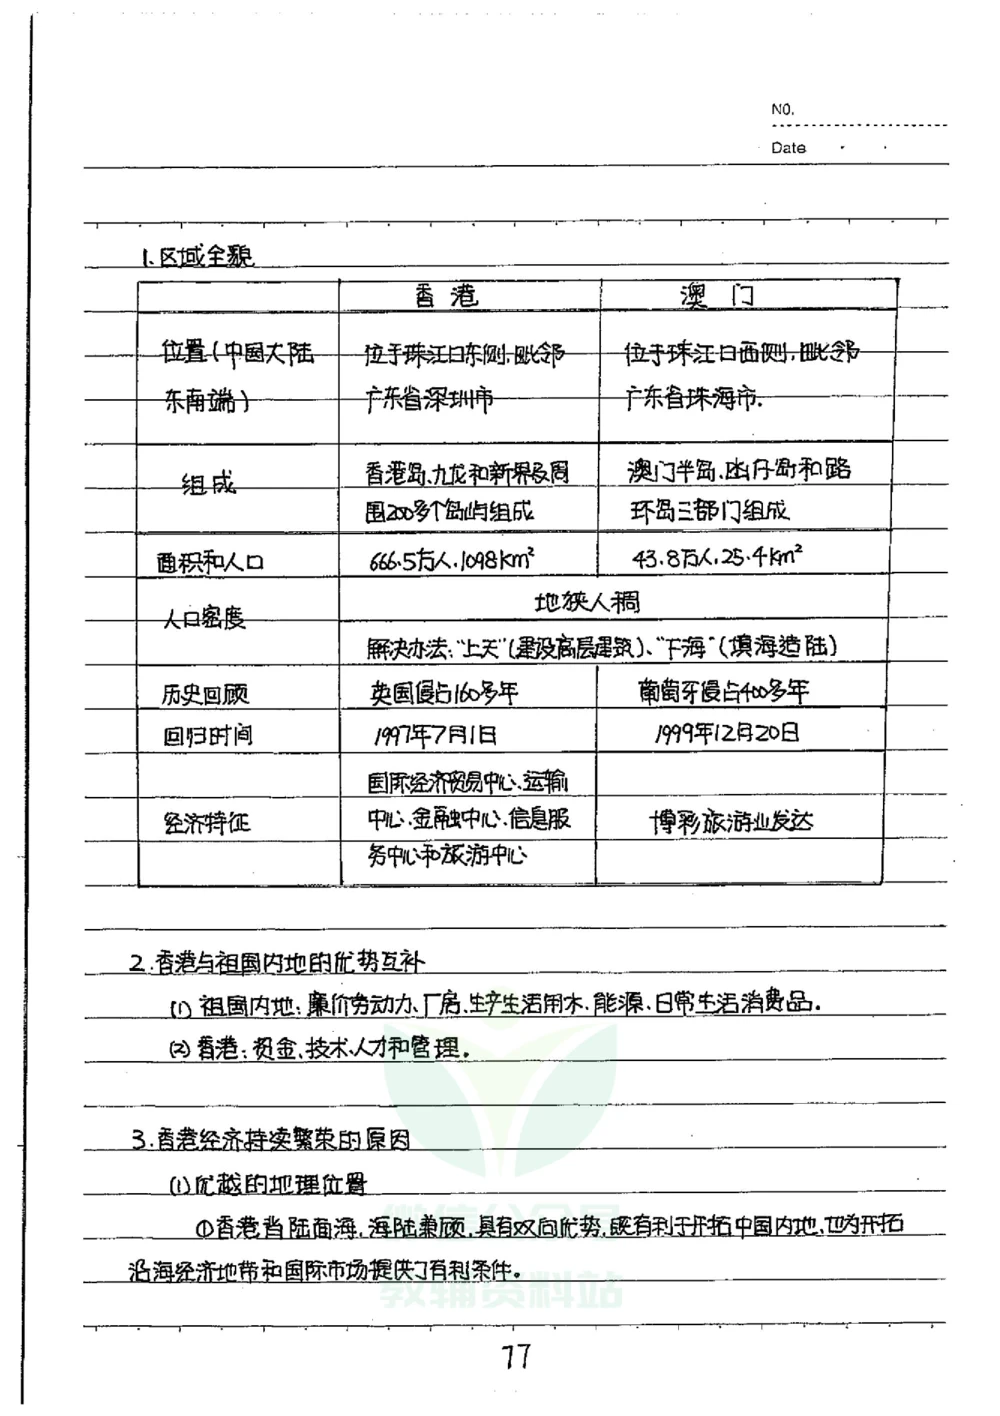 NO.
Date
1、区域全貌
香港 澳门
位置(中国大陆 位于珠江口东侧,毗邻 位于珠江口西侧,毗邻
东南端) 广东省深圳市 广东省珠海市.
组成 香港岛、九龙和新界及周 澳门半岛、凼仔岛和路
围200多个岛屿组成 环岛三部门组成
面积和人口 666.5万人,1098km² 43.8万人,25.4km²
人口密度 地狭人稠
解决办法:“上天”(建设高层建筑)、“下海”(填海造陆)
历史回顾 英国侵占160多年 葡萄牙侵占400多年
回归时间 1997年7月1日 1999年12月20日
国际经济贸易中心、运输
经济特征 中心、金融中心、信息服 博彩旅游业发达
务中心和旅游中心
2.香港与祖国内地的优势互补
(1)祖国内地:廉价劳动力、厂房、生产生活用水、能源、日常生活消费品。
(2)香港:资金、技术、人才和管理。
3.香港经济持续繁荣的原因
(1)优越的地理位置
①香港背陆面海,海陆兼顾,具有双向优势,既有利于开拓中国内地、也为开拓
沿海经济地带和国际市场提供了有利条件。
教辅资料站
77